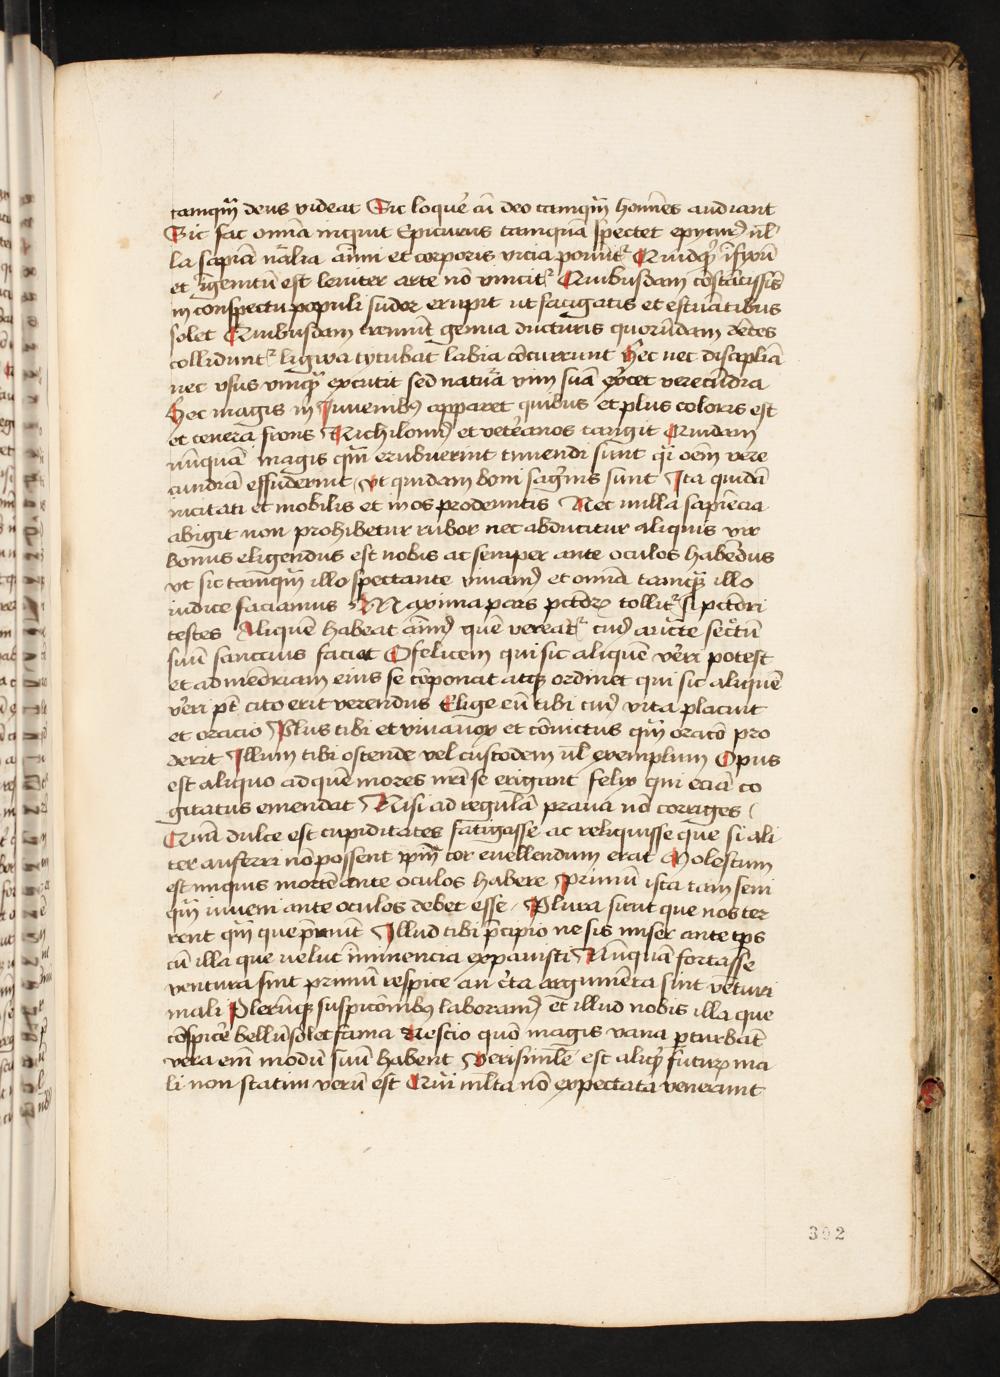 tamqm̄ deus videat Sic loquer̄ cū deo tamqm̄ homīes audiant
Sic fac omīa inquit Epicurus tamquā spectet epycur9 nl̄
la sapiā nālia aīmi et corporis vicia ponūt᷑ Quidq3 īfixū
et īgenitū est leniter arte nō vincit᷑ Quibusdam cōstātissīs
in conspectu populi sudor erupit ut fatigatis et estuātibus
solet Quibusdam tremūt genua dicturis quorūdam dētes
collidunt᷑ ligwa tytubat labia cōcurrunt Hec nec discipliā
nec vsus vnq3 excutit sed natura vim suā exercet verecūdia
Hec magis in Iuvenib9 apparet quibus et plus coloris est
et tenera frons Nichilomi9 et veterāos tangit Quidam
nūquā magis qm̄ erubuerint timendi sunt qī oēm vere
cundiā effuderint Vt quidam boni sagūinis sunt Ita quidā
incitati et mobilis et in os prodeuntis Nec nulla sapiēcia
abigit non prohibetur rubor nec abducitur aliquis vir
bonus eligendus est nobis ac semper ante oculos habēdus
vt sic tamqm̄ illo spectante viuam9 et omīa tamq3 illo
iudice faciamus Maxima pars pctōr tollit᷑ si pctōri
testes Aliquē habeat aīm9 quē vereat᷑ cui9 auctte secrtū
suū sanctius faciet O felicem qui sic aliquē verī potest
et ad memōriam eius se cōponat atq3 ordinet qui sic aliquē
verī pt̄ cito erit verendus Elige eū tibi cui9 vita placuit
et oracio Plus tibi et viua vox et cōuictus qm̄ oracō pro
derit Illum tibi ostende vel custodem ul̄ exemplum Opus
est aliquo ad quē mores nr̄i se erigant felix qui eciā co
gitatus emendat Nisi ad regulā praua nō corriges
Quā dulce est cupiditates fatigasse ac reliquisse que si ali
ter auferri nō possent ipm̄ cor euellendum erat Molestum
est inquis mortē ante oculos habere Primū ista tam seni
qm̄ iuueni ante oculos debet esse Plura sunt que nos ter
rent qm̄ que premūt Illud tibi p̄cipio ne sis miser ante tp̄s
cū illa que uelut īminencia expauisti Nūquā fortasse
ventura sint primū respice an certa argumēta sint vēturi
mali Plerūq3 suspiciōnib9 laboram9 et illud nobis illa que
cōspicer̄ bellū solet fama Nescio quō magis vana p̄turbāt
vera em̄ modū suū habent Verisimile est aliq3 futur ma
li non statim verū est Quā mlt̄a nō expectata venerunt
302